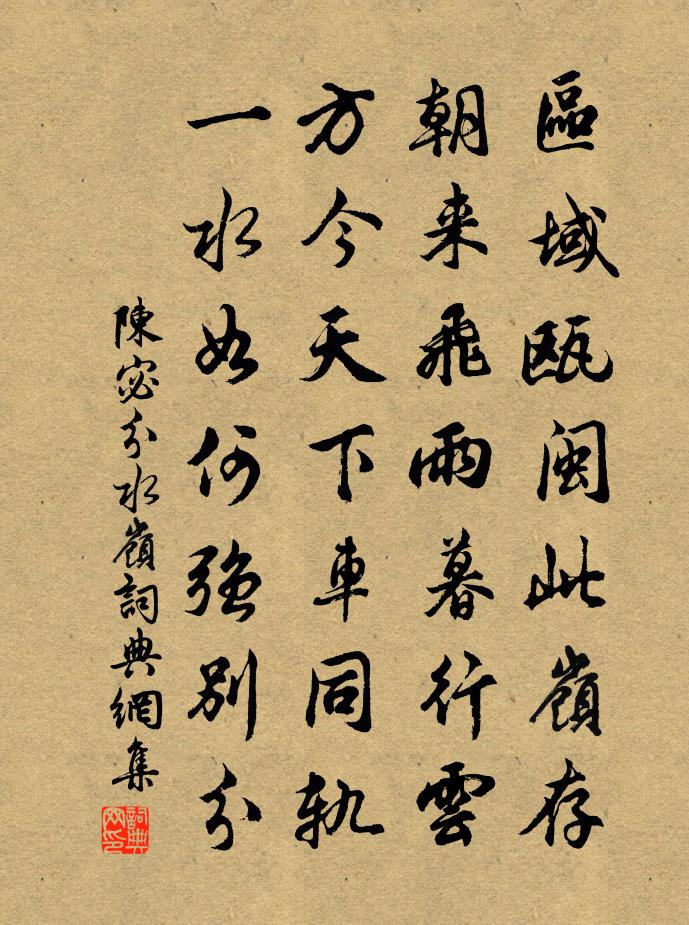 區域甌閩此嶺存
朝来飛雨暮行雲
方今天下車同軌
一水如何強別分
陳宓分水嶺詞典網集
詞典網印